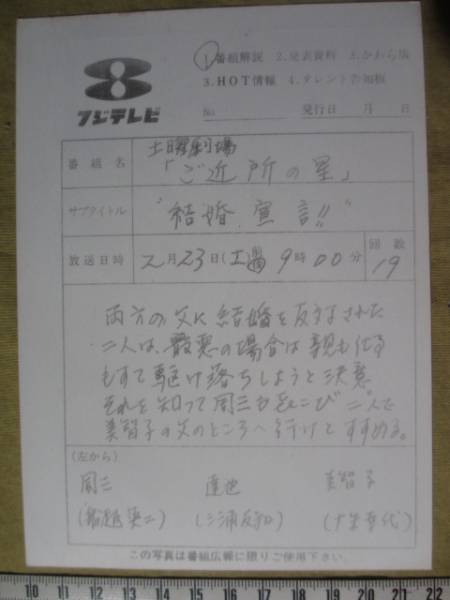 ①番組解説 2.発表資料 3.かわら版
3.HOT情報 4.タレント告知板
フジテレビ
No. 発行日 月 日
番組名
土曜劇場
「ご近所の星」
サブタイトル
"結婚宣言!!"
放送日時
2月23日(土)9時00分
回数
19
両方の父に結婚を反対された
二人は、最悪の場合は親も仕事も
すて駆け落ちしようと決意
それを知って周三も
美智子の父のところへ行けとすすめる。
(左から)
周三 達也 美智子
(船越英二) (三浦友和)
この写真は番組広報に限りご使用下さい。
10 11 12 13 14 15 16 17 18 19 20 21 22